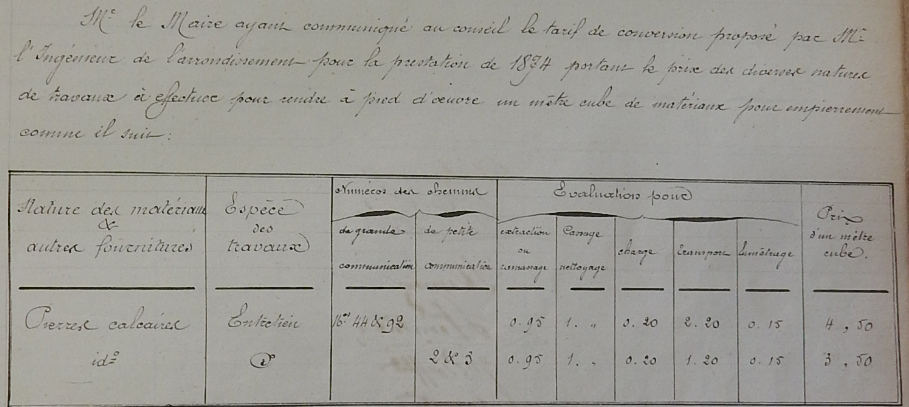 Mr. le Maire ayant communiqué au conseil le tarif de conversion proposé par Mr.
l'Ingénieur de l'arrondissement pour la prestation de 1874 portant le prix des diverses natures
de travaux à effectuer pour rendre à pied d'œuvre un mètre cube de matériaux pour empierrement
comme il suit :
Nature des matériaux & autres fournitures | Espèce des travaux | Numéros des chemins | Evaluation pour | Prix d'un mètre cube.
de grande communication | de petite communication | extraction ou ramassage | Cassage nettoyage | charge | transport | emmétrage
Pierres calcaires | Entretien | 44 & 92 | 0.95 | 1. " | 0.20 | 2.20 | 0.15 | 4,50
id° | 2 & 3 | 0.95 | 1. " | 0.20 | 1.20 | 0.15 | 3,50